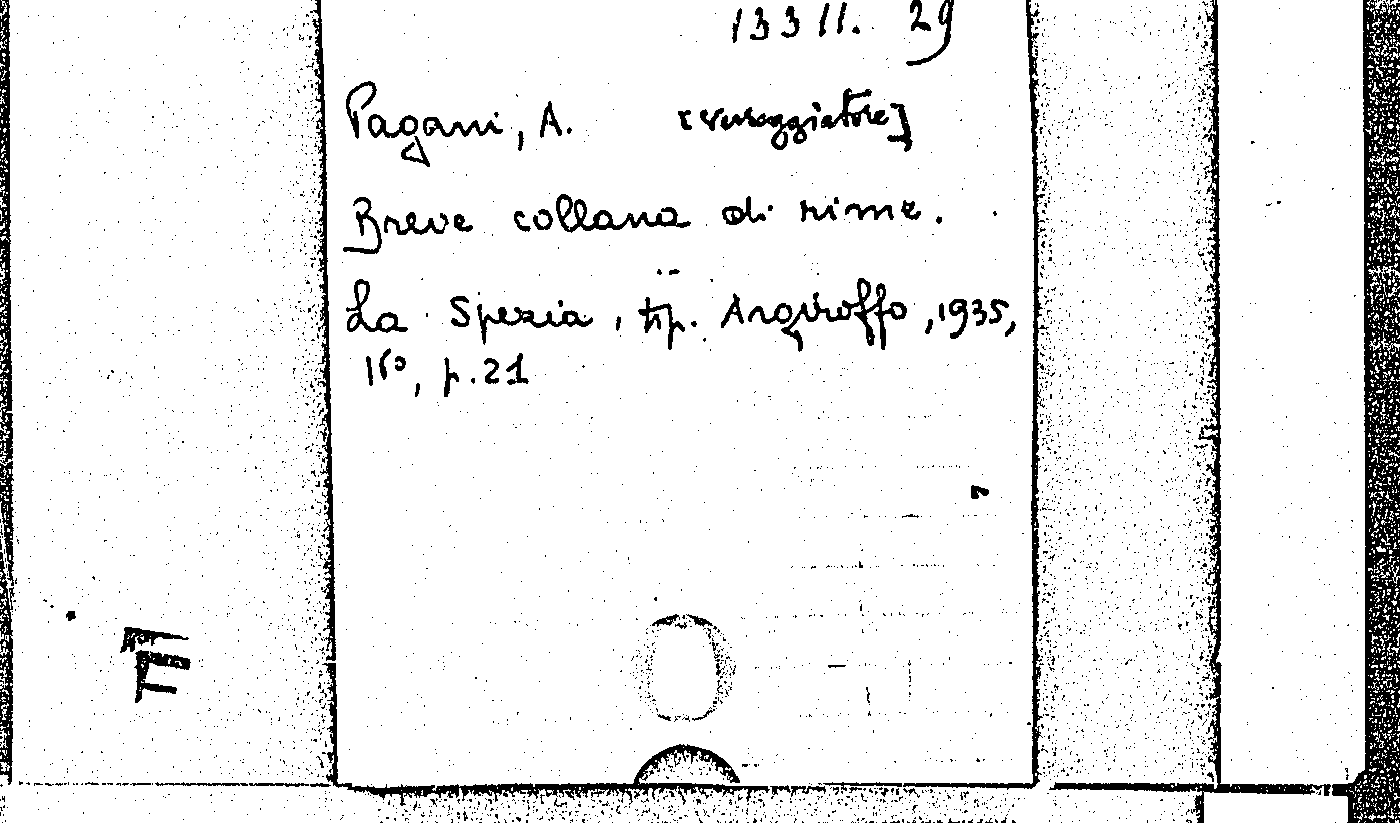 13311. 29
Pagani, A. [verseggiatore]
Breve collana di rime.
La Spezia, tip. Argiroffo, 1935,
16°, p. 21
F